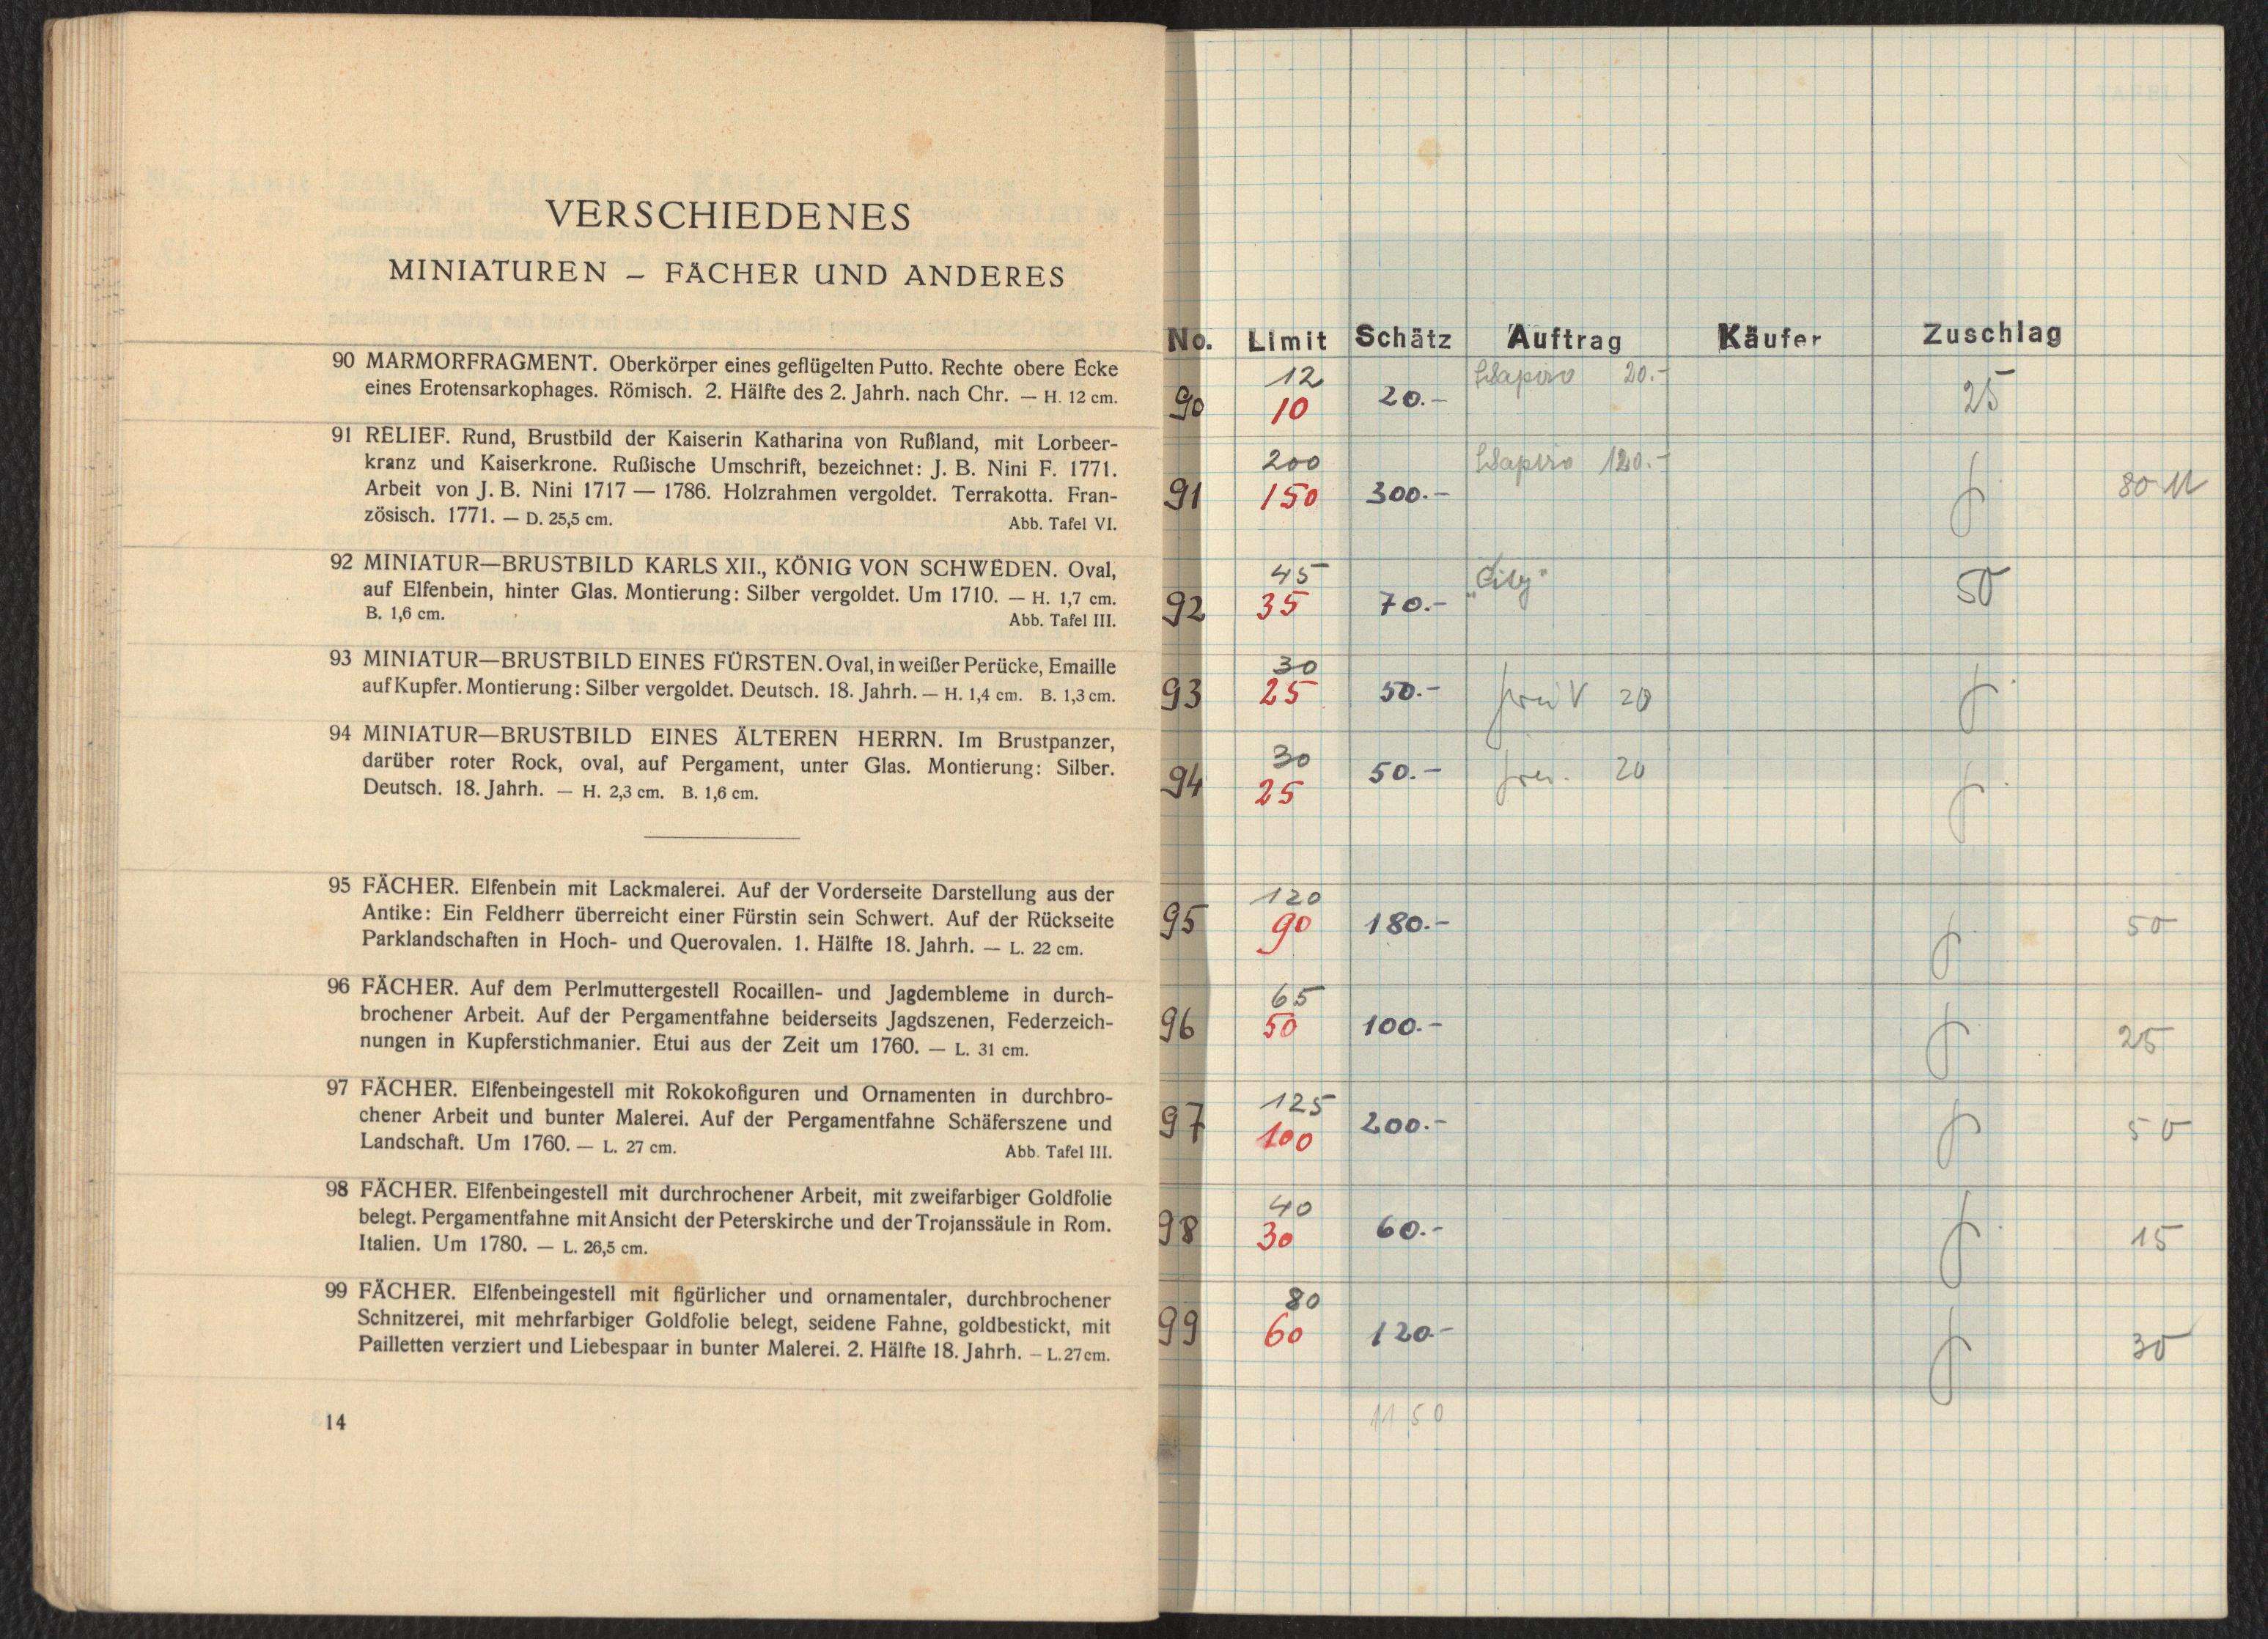 VERSCHIEDENES
MINIATUREN – FÄCHER UND ANDERES
90 MARMORFRAGMENT. Oberkörper eines geflügelten Putto. Rechte obere Ecke
eines Erotensarkophages. Römisch. 2. Hälfte des 2. Jahrh. nach Chr. — H. 12 cm.
91 RELIEF. Rund, Brustbild der Kaiserin Katharina von Rußland, mit Lorbeer-
kranz und Kaiserkrone. Rußische Umschrift, bezeichnet: J. B. Nini F. 1771.
Arbeit von J. B. Nini 1717 — 1786. Holzrahmen vergoldet. Terrakotta. Fran-
zösisch. 1771. — D. 25,5 cm. Abb. Tafel VI.
92 MINIATUR—BRUSTBILD KARLS XII., KÖNIG VON SCHWEDEN. Oval,
auf Elfenbein, hinter Glas. Montierung: Silber vergoldet. Um 1710. — H. 1,7 cm.
B. 1,6 cm. Abb. Tafel III.
93 MINIATUR—BRUSTBILD EINES FÜRSTEN. Oval, in weißer Perücke, Emaille
auf Kupfer. Montierung: Silber vergoldet. Deutsch. 18. Jahrh. — H. 1,4 cm. B. 1,3 cm.
94 MINIATUR—BRUSTBILD EINES ÄLTEREN HERRN. Im Brustpanzer,
darüber roter Rock, oval, auf Pergament, unter Glas. Montierung: Silber.
Deutsch. 18. Jahrh. — H. 2,3 cm. B. 1,6 cm.
95 FÄCHER. Elfenbein mit Lackmalerei. Auf der Vorderseite Darstellung aus der
Antike: Ein Feldherr überreicht einer Fürstin sein Schwert. Auf der Rückseite
Parklandschaften in Hoch- und Querovalen. 1. Hälfte 18. Jahrh. — L. 22 cm.
96 FÄCHER. Auf dem Perlmuttergestell Rocaillen- und Jagdembleme in durch-
brochener Arbeit. Auf der Pergamentfahne beiderseits Jagdszenen, Federzeich-
nungen in Kupferstichmanier. Etui aus der Zeit um 1760. — L. 31 cm.
97 FÄCHER. Elfenbeingestell mit Rokokofiguren und Ornamenten in durchbro-
chener Arbeit und bunter Malerei. Auf der Pergamentfahne Schäferszene und
Landschaft. Um 1760. — L. 27 cm. Abb. Tafel III.
98 FÄCHER. Elfenbeingestell mit durchrochener Arbeit, mit zweifarbiger Goldfolie
belegt. Pergamentfahne mit Ansicht der Peterskirche und der Trojanssäule in Rom.
Italien. Um 1780. — L. 26,5 cm.
99 FÄCHER. Elfenbeingestell mit figürlicher und ornamentaler, durchbrochener
Schnitzerei, mit mehrfarbiger Goldfolie belegt, seidene Fahne, goldbestickt, mit
Pailletten verziert und Liebespaar in bunter Malerei. 2. Hälfte 18. Jahrh. – L. 27 cm.
14
No. Limit Schätz Auftrag Käufer Zuschlag
12 20.-
90 10 20.- 25
200
91 150 300.- 80 M
45 "City"
92 35 70.- 50
30
93 25 50.- 20
30
94 25 50.- 20
120
95 90 180.- 50
65
96 50 100.- 25
125
97 100 200.- 50
40
98 30 60.- 15
80
99 60 120.- 30
1150